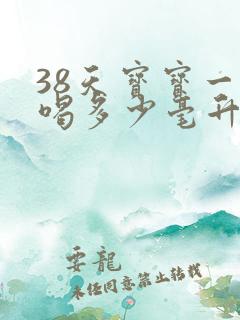 38天宝宝一
喝多少毫升
要龍
未经同意禁止转载